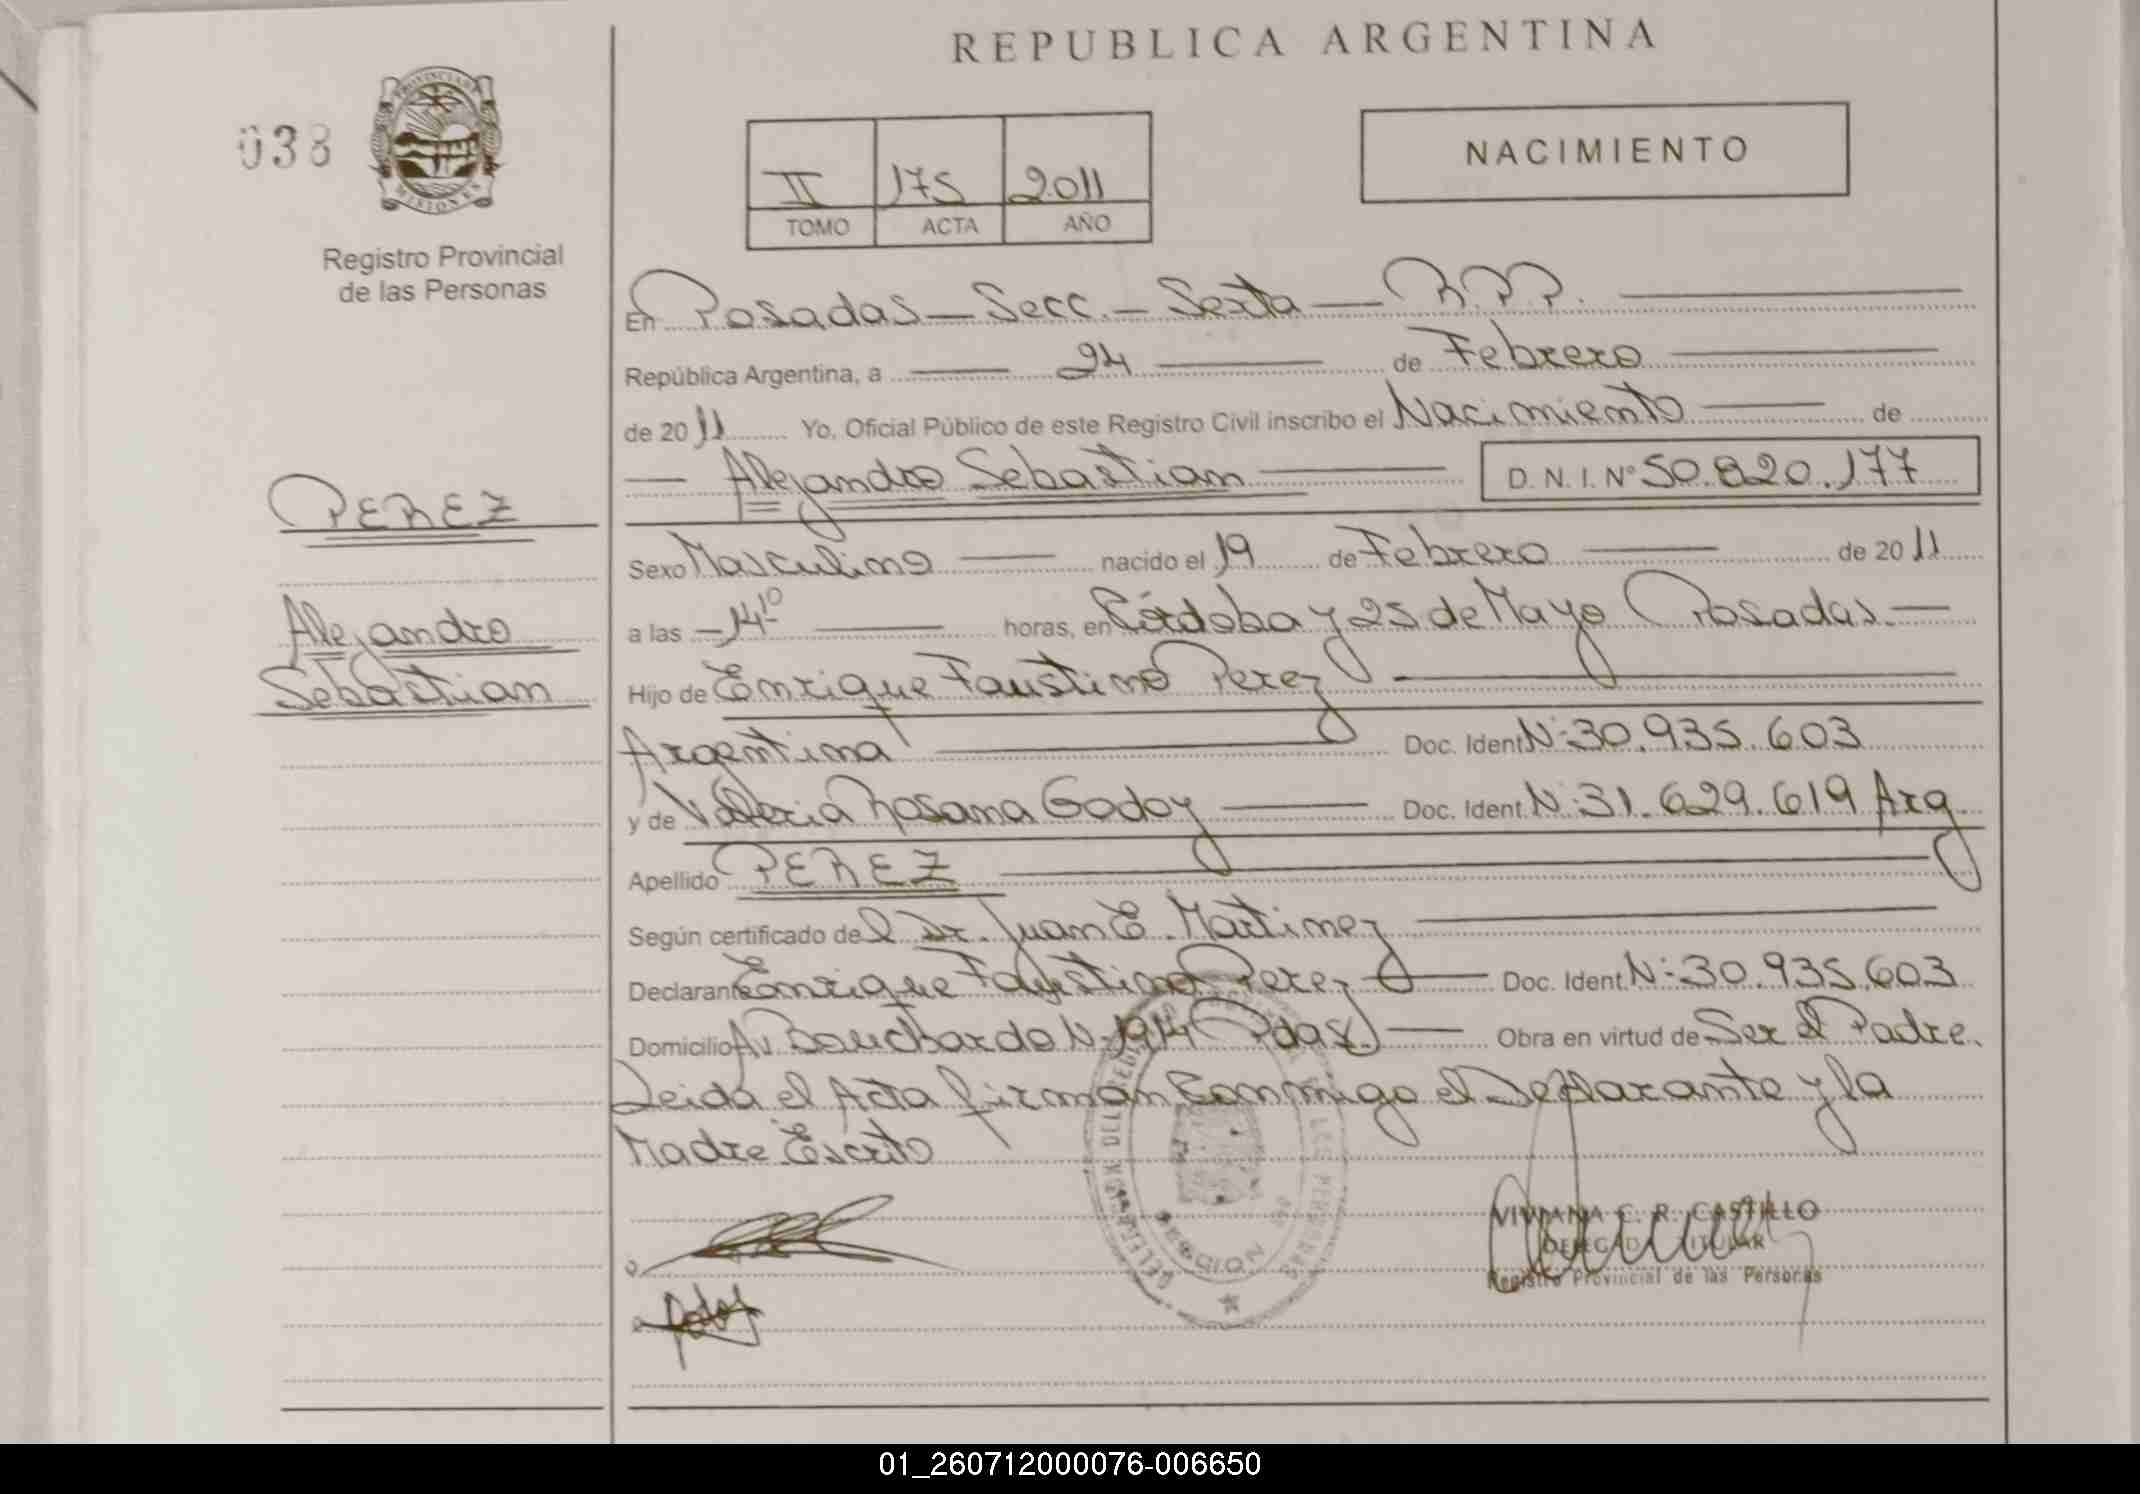 REPUBLICA ARGENTINA
038
PROVINCIA DE
MISIONES
Registro Provincial
de las Personas
NACIMIENTO
II 175 2011
TOMO ACTA AÑO
En Posadas - Secc. - Sexta - R.P.P.
República Argentina, a 24 de Febrero
de 2011 Yo, Oficial Público de este Registro Civil inscribo el Nacimiento de
Alejandro Sebastian D.N.I. Nº 50.820.177
PEREZ
Alejandro
Sebastian
Sexo Masculino nacido el 19 de Febrero de 2011
a las 14 10 horas, en Córdoba y 25 de Mayo Posadas.
Hijo de Enrique Faustino Perez
Argentina Doc. Ident. Nº 30.935.603
y de Valeria Rosana Godoy Doc. Ident. Nº 31.629.619 Arg.
Apellido PEREZ
Según certificado del Dr. Juan E. Martinez
Declarante Enrique Faustino Perez Doc. Ident. Nº 30.935.603
Domicilio Av Bouchardo Nº 1914 Pdas. Obra en virtud de Ser el Padre.
Leida el Acta firman Conmigo el Declarante y la
Madre Escrito
VIVIANA C. R. CASTILLO
DELEGADA TITULAR
Registro Provincial de las Personas
01_260712000076-006650